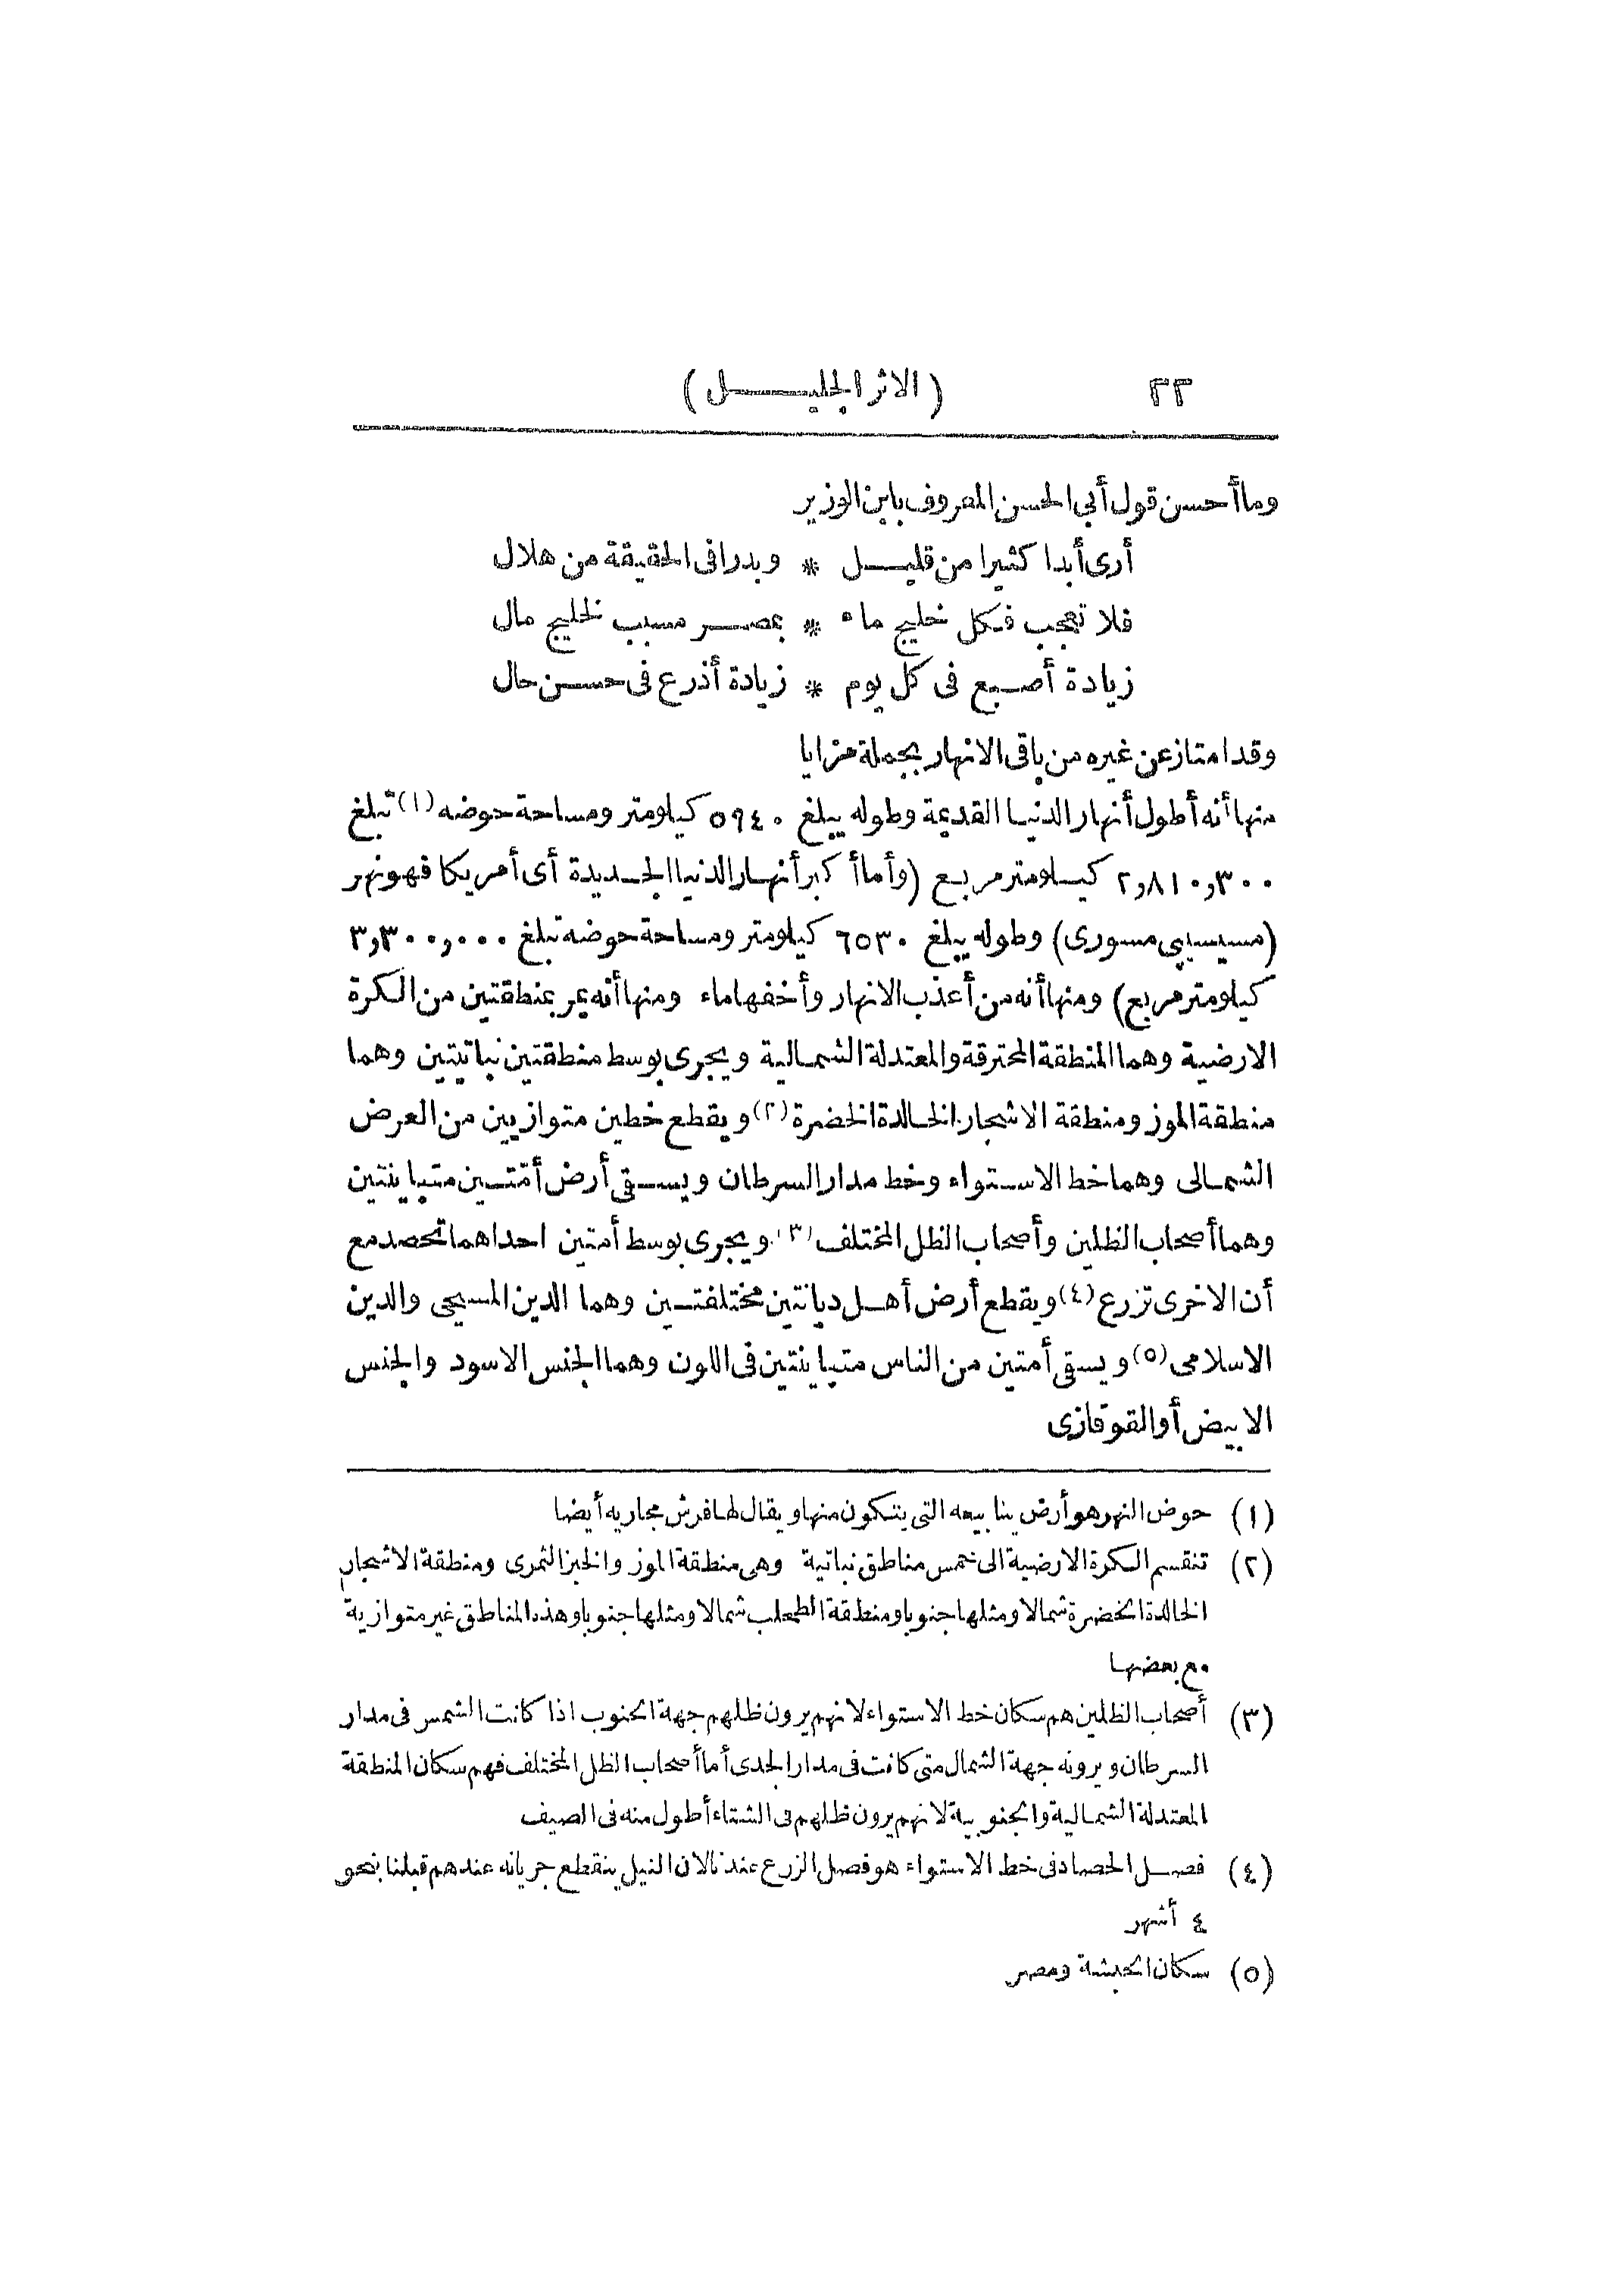 ٢٢ (الاثر الجليل)
وما أحسن قول أبي الحسن المعروف بابن الوزير
أرى أبدا كثيرا من قليل * وبدرا فى الحقيقة من هلال
فلا تعجب فكل خليج ماء * بمصر مسبب لخليج مال
زيادة أصبع فى كل يوم * زيادة أذرع فى حسن حال
وقد امتاز عن غيره من باقى الانهار بجملة مزايا
منها أنه أطول أنهار الدنيا القديمة وطوله يبلغ ٥٩٤٠ كيلومتر ومساحة حوضه (١) تبلغ
٢,٨١٠,٣٠٠ كيلومتر مربع (وأما أكبر أنهار الدنيا الجديدة أى أمريكا فهو نهر
(مسيسيپى مسورى) وطوله يبلغ ٦٥٣٠ كيلومتر ومساحة حوضه تبلغ ٣,٣٠٠,٠٠٠
كيلومتر مربع) ومنها أنه من أعذب الانهار وأخفها ماء ومنها أنه يمر بمنطقتين من الكرة
الارضية وهما المنطقة المحترقة والمعتدلة الشمالية ويجرى بوسط منطقتين نباتيتين وهما
منطقة الموز ومنطقة الاشجار الخالدة الخضرة (٢) ويقطع خطين متوازيين من العرض
الشمالى وهما خط الاستواء وخط مدار السرطان ويسقى أرض أمّتين متباينتين
وهما أصحاب الظلين وأصحاب الظل المختلف (٣) ويجرى بوسط أمتين احداهما تحصد مع
أن الاخرى تزرع (٤) ويقطع أرض أهل ديانتين مختلفتين وهما الدين المسيحى والدين
الاسلامى (٥) ويسقى أمتين من الناس متباينتين فى اللون وهما الجنس الاسود والجنس
الابيض أو القوقازى
(١) حوض النهر هو أرض ينابيعه التى يتكون منها ويقال لها فرش مجاريه أيضا
(٢) تنقسم الكرة الارضية الى خمس مناطق نباتية وهى منطقة الموز والخبز الثمرى ومنطقة الاشجار
الخالدة الخضرة شمالا ومثلها جنوبا ومنطقة الطحلب شمالا ومثلها جنوبا وهذه المناطق غير متوازية
مع بعضها
(٣) أصحاب الظلين هم سكان خط الاستواء لانهم يرون ظلهم جهة الجنوب اذا كانت الشمس فى مدار
السرطان ويرونه جهة الشمال متى كانت فى مدار الجدى أما أصحاب الظل المختلف فهم سكان المنطقة
المعتدلة الشمالية والجنوبية لانهم يرون ظلهم فى الشتاء أطول منه فى الصيف
(٤) فصل الحصاد فى خط الاستواء هو فصل الزرع عندنا لان النيل ينقطع جريانه عندهم قبلنا بنحو
٤ أشهر
(٥) سكان الحبشة ومصر